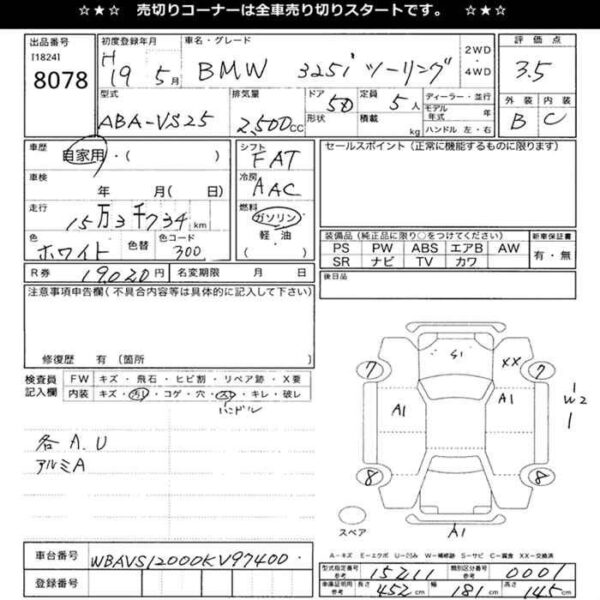 ☆★☆ 売切りコーナーは全車売り切りスタートです。 ☆★☆
出品番号 [1824] 8078
初度登録年月 H19 5月
車名・グレード BMW 325i ツーリング
2WD・4WD
評価点 3.5
外装 B 内装 C
型式 ABA-VS25
排気量 2,500cc
ドア 5D 形状
定員 5人 積載 kg
ディーラー・並行
モデル年式 年
ハンドル 左・右
車歴 自家用・( )
車検 年 月( 日)
走行 15万3千734km
色 ホワイト 色替 色コード 300
シフト FAT
冷房 AAC
燃料 ガソリン 軽・油 ( )
セールスポイント(正常に機能するものに限ります)
装備品(純正品に限り○をつけてください) 新車保証書
PS PW ABS エアB AW 有・無
SR ナビ TV カワ
R券 19,020円 名変期限 月 日
後日品
注意事項申告欄(不具合内容等は具体的に記入して下さい)
修復歴 有(箇所 )
検査員記入欄
FW キズ・飛石・ヒビ割・リペア跡・X要
内装 キズ・汚レ・コゲ・穴・スレ・キレ・破レ
ハンドル
各A.U
アルミA
S1 XX
7 7
A1 A1
W2
8 8
A1
スペア
A-キズ E-エクボ U-凹み W-補修跡 S-サビ C-腐食 XX-交換済
車台番号 WBAVS12000KV97400
登録番号
型式指定番号 参考 15211 類別区分番号 参考 0001
車庫証明用 参考 長さ 452cm 幅 181cm 高さ 145cm